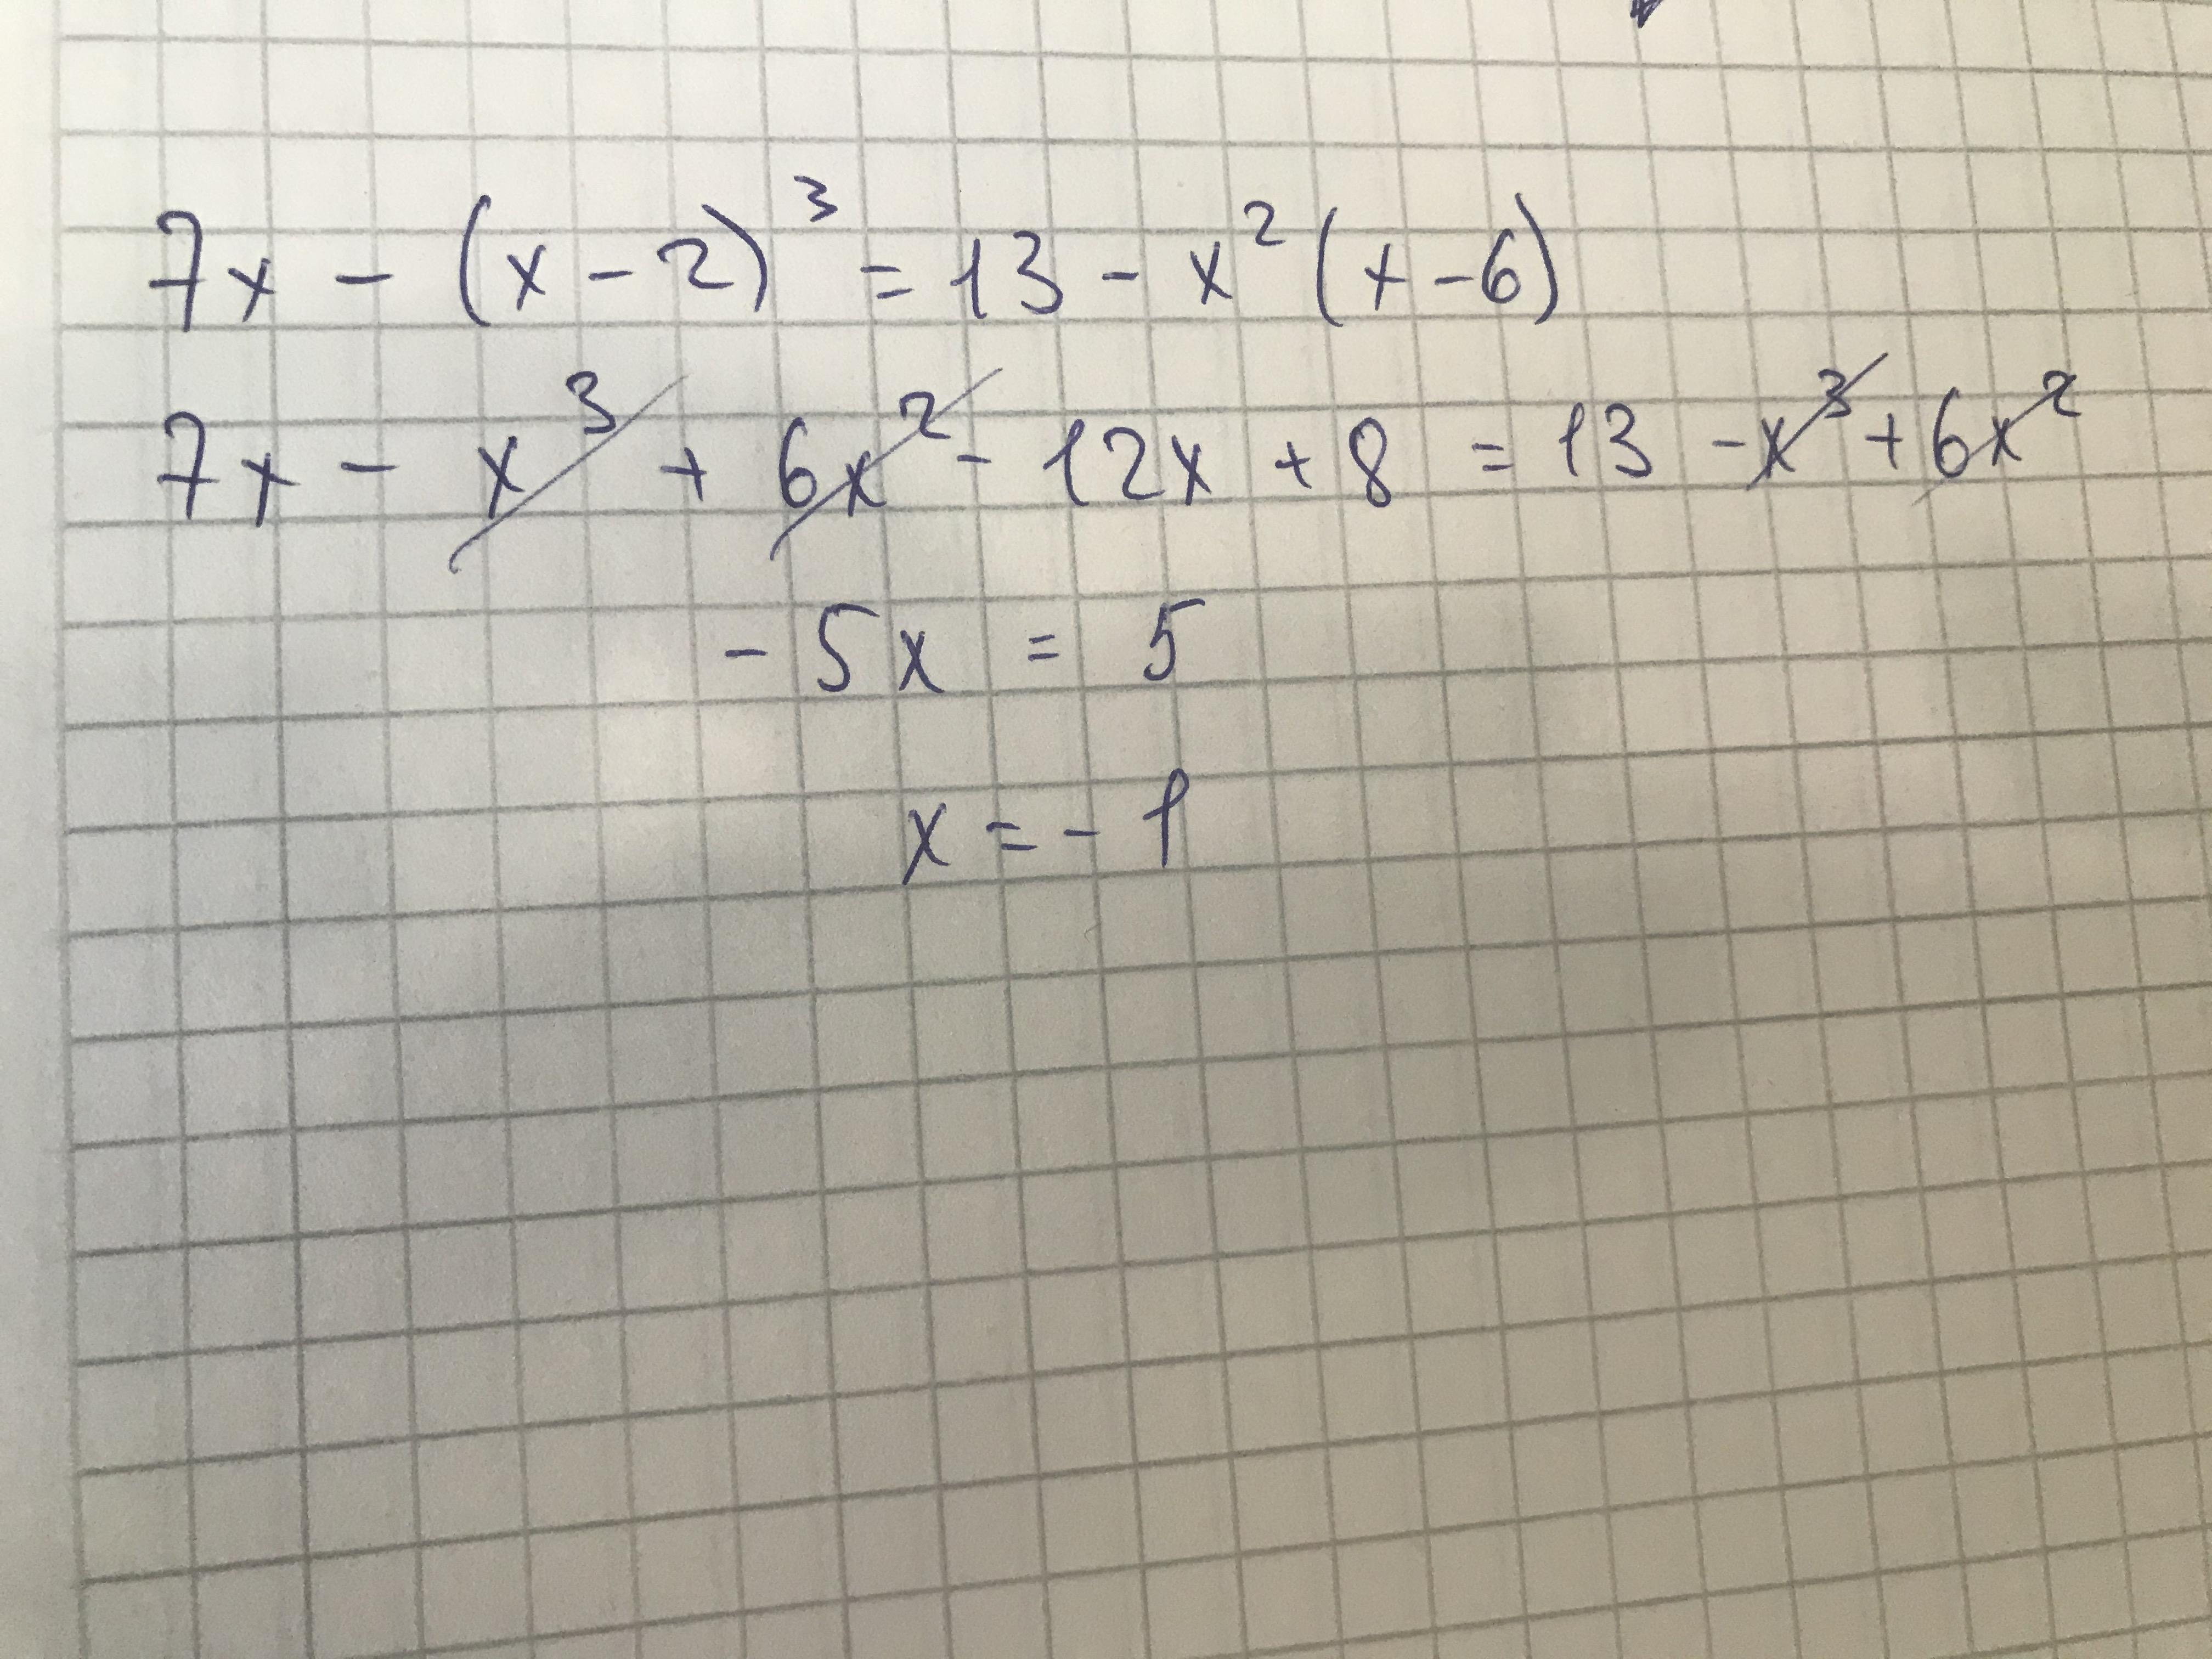 7x - (x - 2)³ = 13 - x² (x - 6)
7x - x³ + 6x² - 12x + 8 = 13 - x³ + 6x²
- 5x = 5
x = - 1